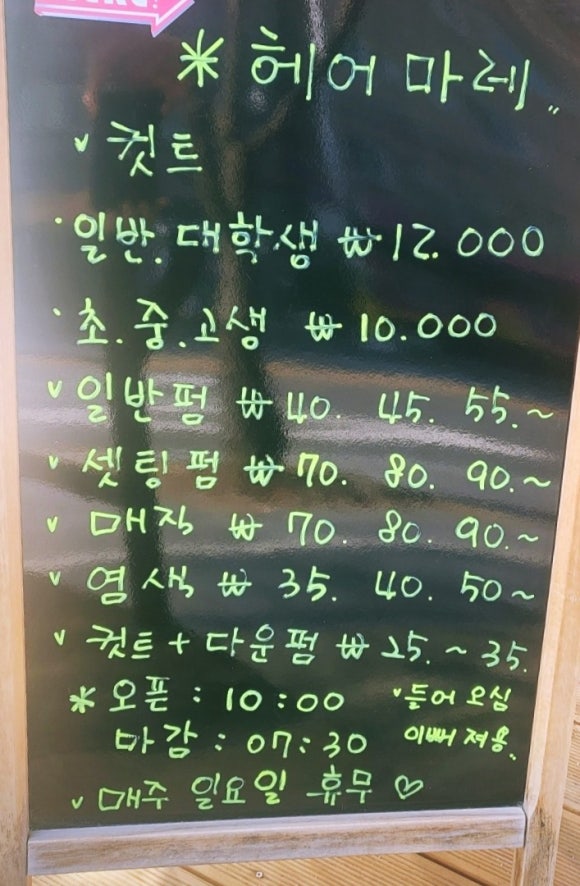 * 헤어 마레..
v 컷트
· 일반. 대학생 ₩ 12.000
· 초.중.고생 ₩ 10.000
v 일반펌 ₩ 40. 45. 55.~
v 셋팅펌 ₩ 70. 80. 90.~
v 매직 ₩ 70. 80. 90.~
v 염색 ₩ 35. 40. 50~
v 컷트 + 다운펌 ₩ 25.~35.
* 오픈 : 10:00
마감 : 07:30
v 들어 오심
이뻐 져용..
v 매주 일요일 휴무 ♡